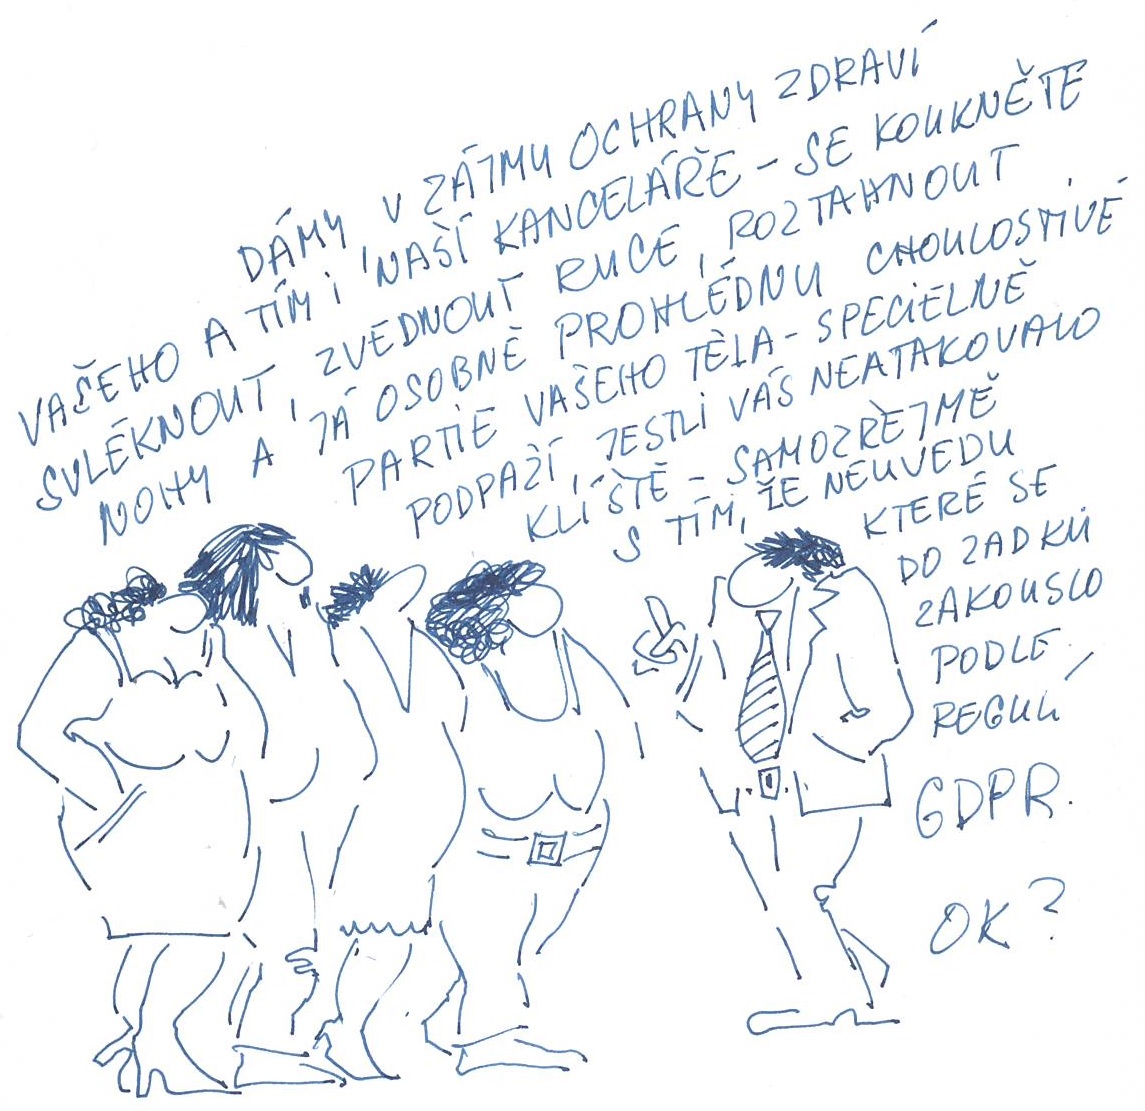 DÁMY V ZÁJMU OCHRANY ZDRAVÍ
VAŠEHO A TÍM I NAŠÍ KANCELÁŘE - SE KOUKNĚTE
SVLÉKNOUT, ZVEDNOUT RUCE, ROZTAHNOUT
NOHY A JÁ OSOBNĚ PROHLÉDNU CHOULOSTIVÉ
PARTIE VAŠEHO TĚLA - SPECIELNĚ
PODPAŽÍ, JESTLI VÁS NEATAKOVALO
KLÍŠTĚ - SAMOZŘEJMĚ
S TÍM, ŽE NEUVEDU
KTERÉ SE
DO ZADKŮ
ZAKOUSLO
PODLE
REGULÍ
GDPR.
OK?